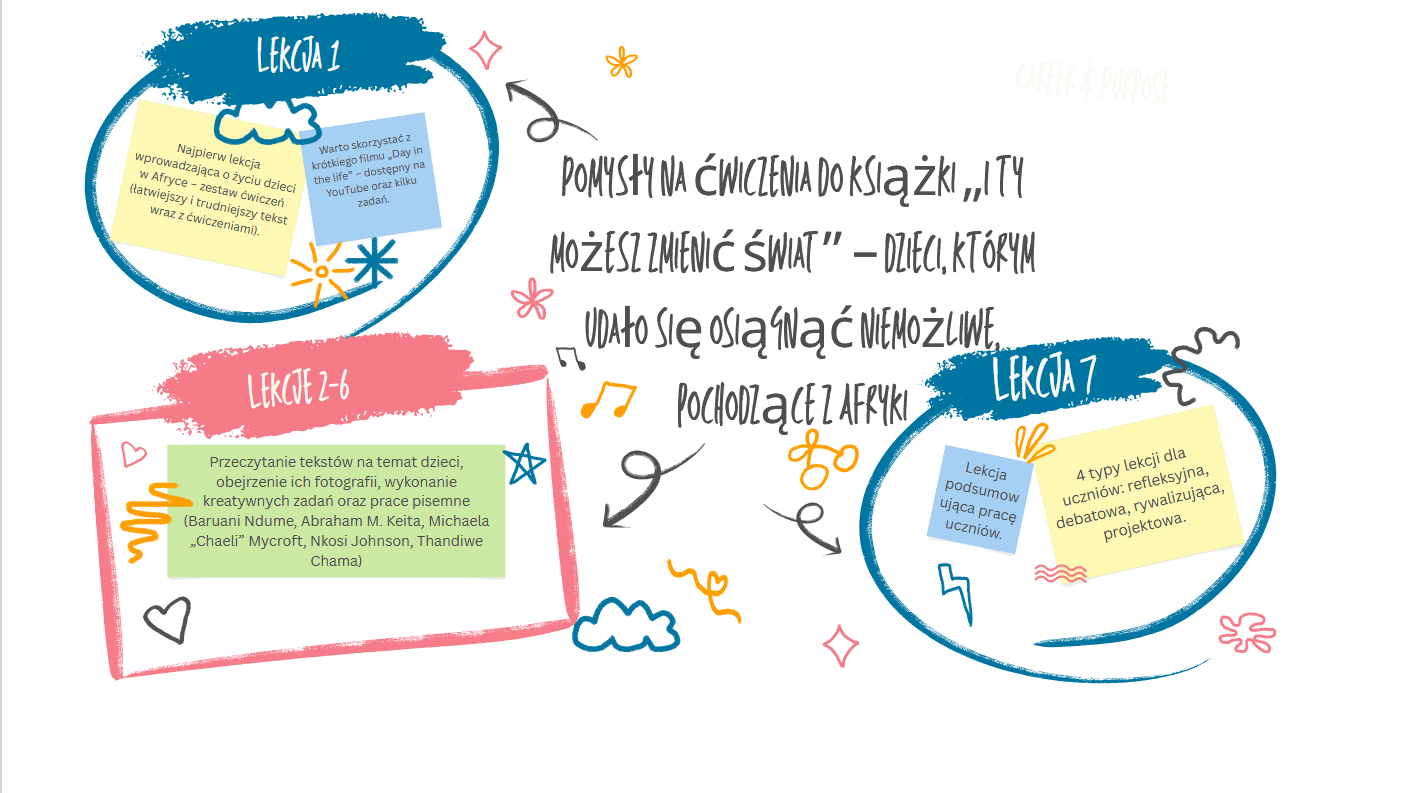 LEKCJA 1
Najpierw lekcja
wprowadzająca o życiu dzieci
w Afryce – zestaw ćwiczeń
(łatwiejszy i trudniejszy tekst
wraz z ćwiczeniami).
Warto skorzystać z
krótkiego filmu „Day in
the life” – dostępny na
YouTube oraz kilku
zadań.
CAREER & PURPOSE
POMYSŁY NA ĆWICZENIA DO KSIĄŻKI „I TY
MOŻESZ ZMIENIĆ ŚWIAT” – DZIECI, KTÓRYM
UDAŁO SIĘ OSIĄGNĄĆ NIEMOŻLIWE,
POCHODZĄCE Z AFRYKI
LEKCJE 2-6
Przeczytanie tekstów na temat dzieci,
obejrzenie ich fotografii, wykonanie
kreatywnych zadań oraz prace pisemne
(Baruani Ndume, Abraham M. Keita, Michaela
„Chaeli” Mycroft, Nkosi Johnson, Thandiwe
Chama)
LEKCJA 7
Lekcja
podsumow
ująca pracę
uczniów.
4 typy lekcji dla
uczniów: refleksyjna,
debatowa, rywalizująca,
projektowa.